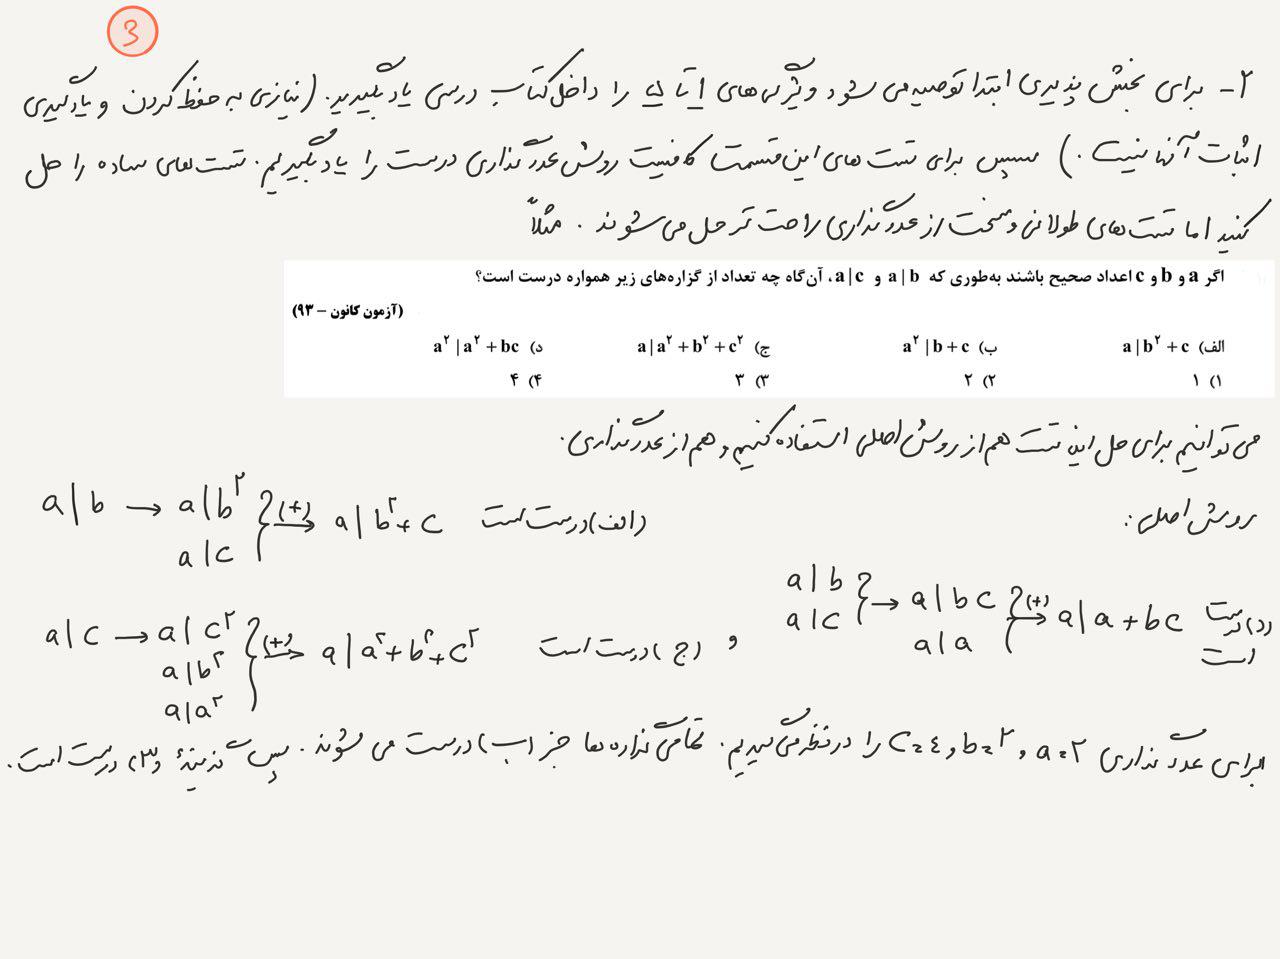 3
۲- برای بخش پذیری ابتدا توصیه می شود ویژگی های ۱ تا ۵ را داخل کتاب درسی یاد بگیرید. (نیازی به حفظ کردن و یادگیری
اثبات آنها نیست.) سپس برای تست های این قسمت کافیست روش عددگذاری درست را یاد بگیریم. تست های ساده را حل
کنید اما تست های طولانی و سخت از عددگذاری راحت تر حل می شوند. مثلاً
اگر a و b و c اعداد صحیح باشند به‌طوری که a|b و a|c، آن‌گاه چه تعداد از گزاره‌های زیر همواره درست است؟
(آزمون کانون – ۹۳)
الف) a|b²+c ب) a²|b+c ج) a|a²+b²+c² د) a²|a²+bc
۱) ۱ ۲) ۲ ۳) ۳ ۴) ۴
می توانیم برای حل این تست هم از روش اصلی استفاده کنیم و هم از عددگذاری.
روش اصلی:
a|b → a|b²
a|c } (+)→ a|b²+c الف) درست است
a|b
a|c } → a|bc
a|a } (+)→ a|a+bc د) درست است
a|c → a|c²
a|b²
a|a² } (+)→ a|a²+b²+c² ج) درست است و
برای عددگذاری a=۲ و b=۲ و c=٤ را در نظر می گیریم. تمامی گزاره ها جز ب) درست می شوند. پس گزینهٔ ۳) درست است.